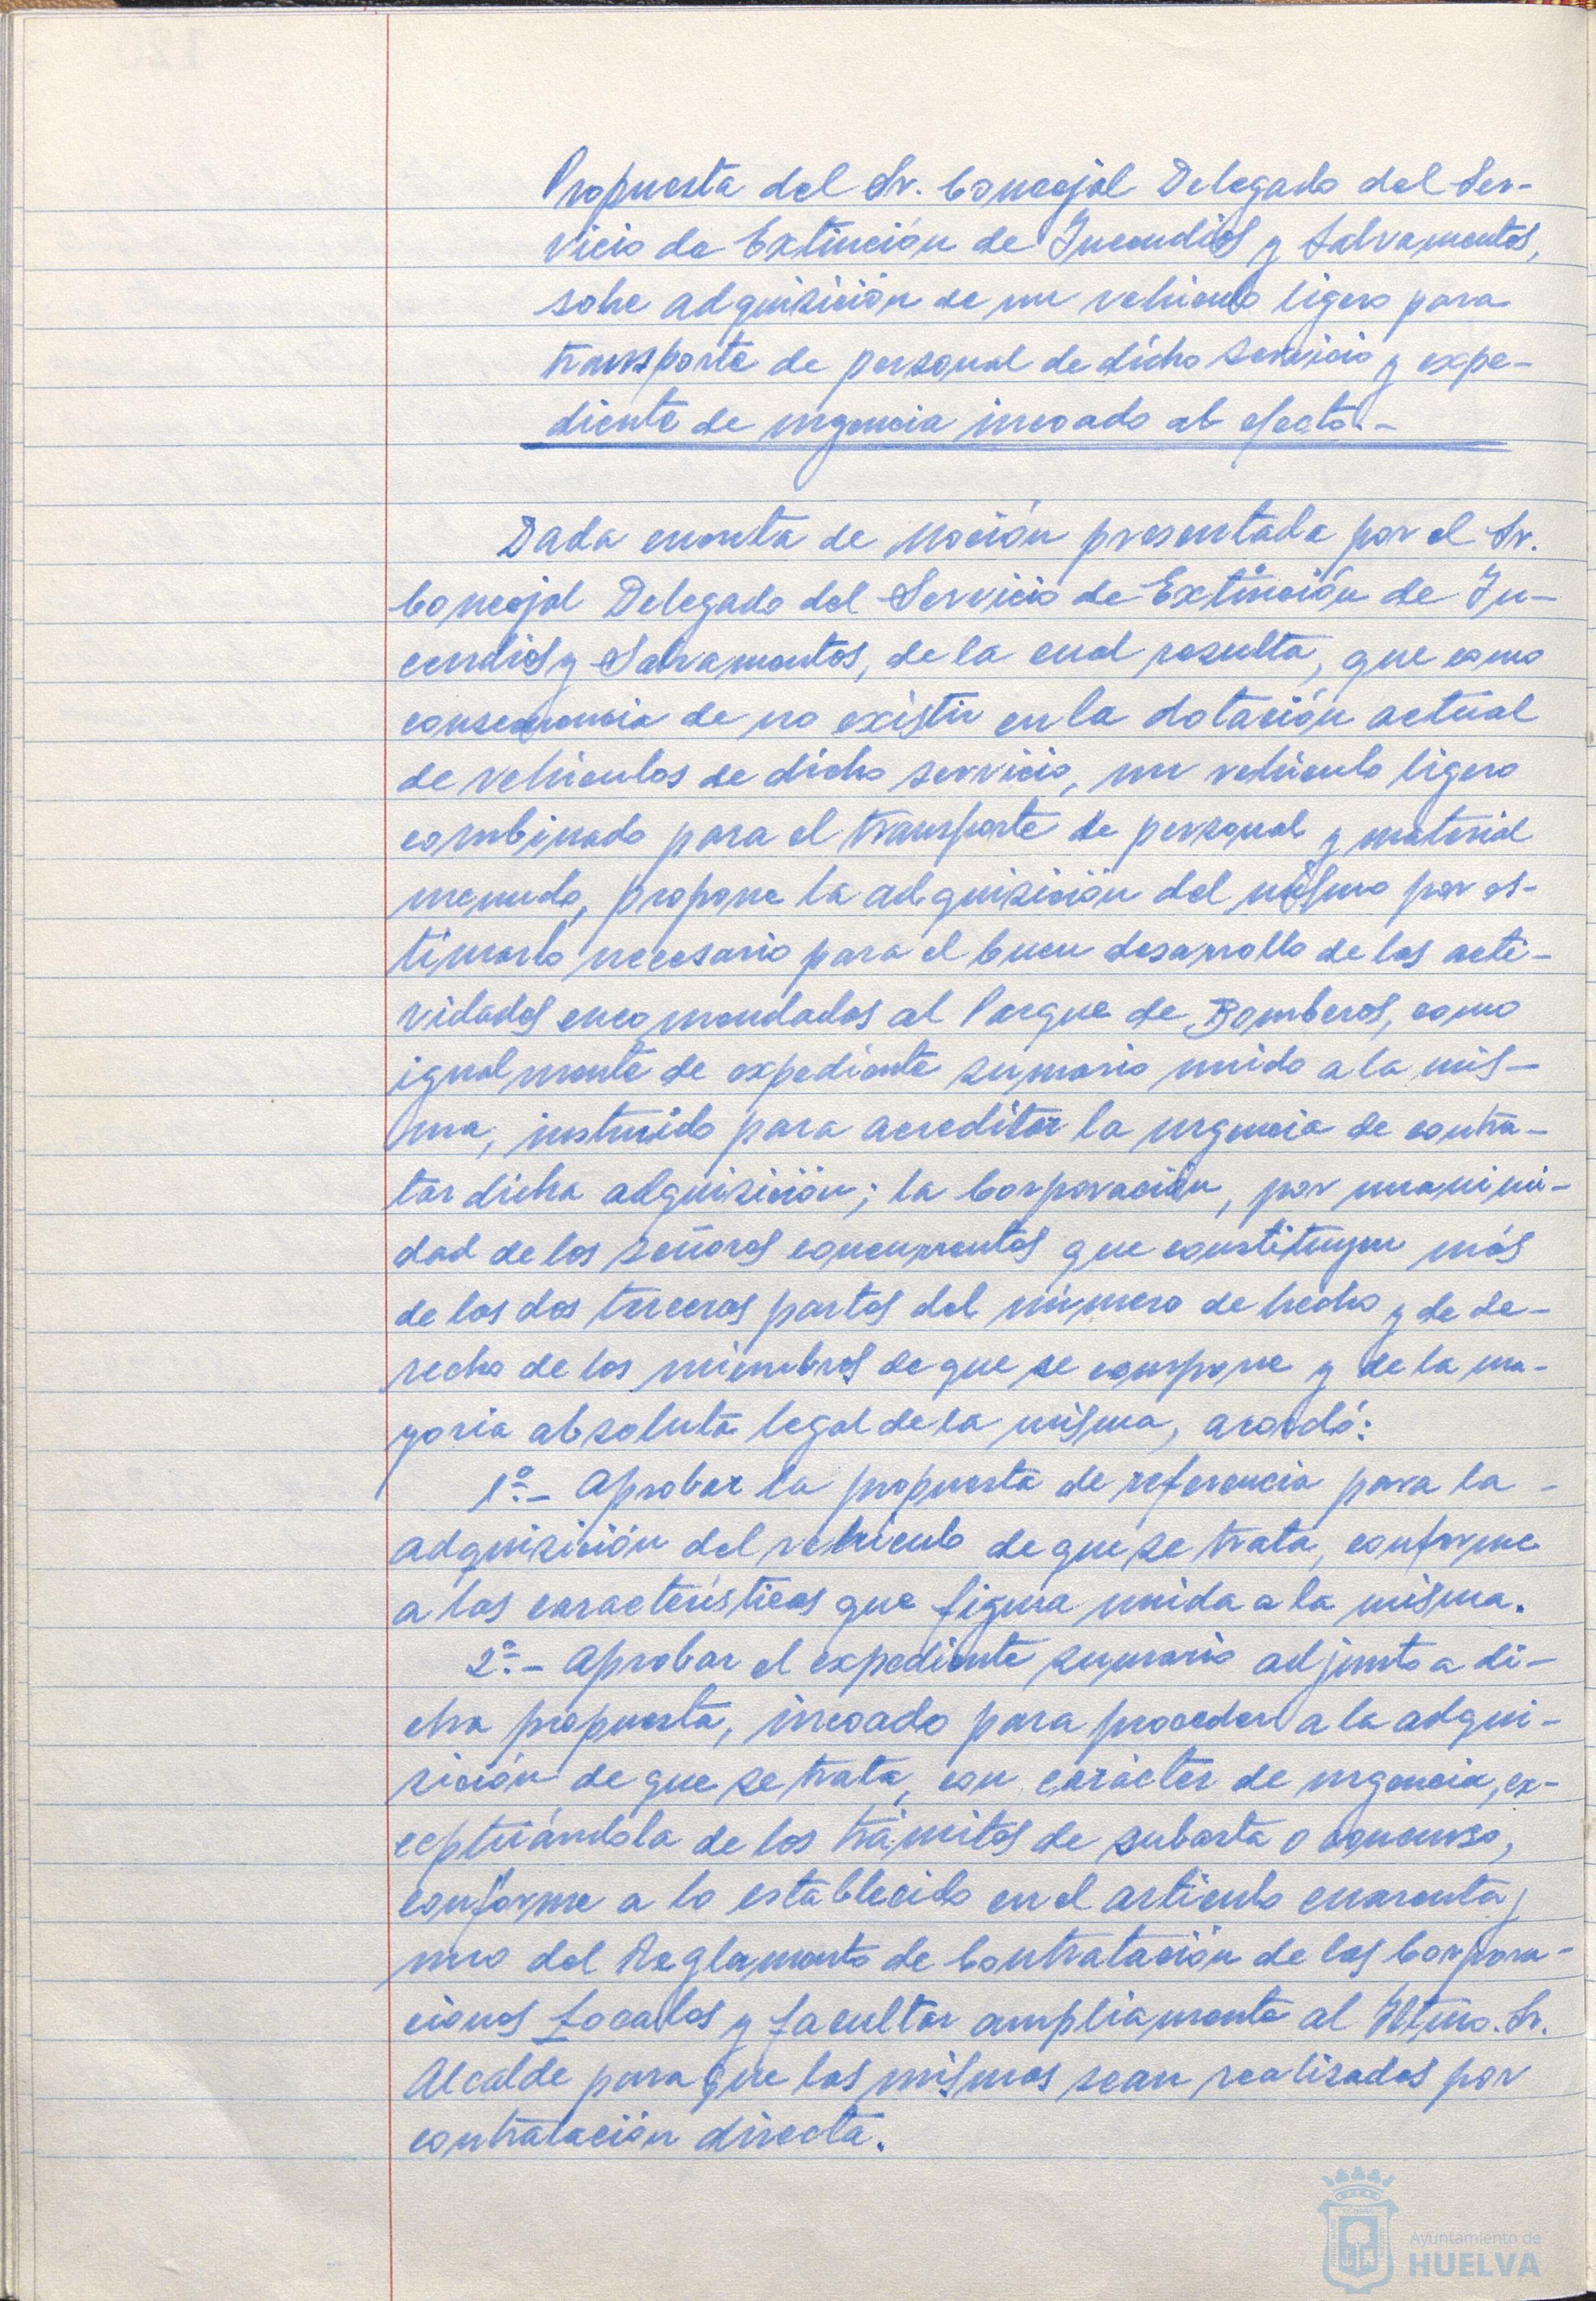 Propuesta del Sr. Concejal Delegado del Ser-
vicio de Extinción de Incendios y Salvamentos,
sobre adquisición de un vehiculo ligero para
transporte de personal de dicho servicio y expe-
diente de urgencia incoado al efecto.-
Dada cuenta de Moción presentada por el Sr.
Concejal Delegado del Servicio de Extinción de In-
cendios y Salvamentos, de la cual resulta, que como
consecuencia de no existir en la dotación actual
de vehiculos de dicho servicio, un vehiculo ligero
combinado para el transporte de personal y material
menudo, propone la adquisición del mismo por es-
timarlo necesario para el buen desarrollo de las acti-
vidades encomendadas al Parque de Bomberos, como
igualmente de expediente sumario unido a la mis-
ma, instruido para acreditar la urgencia de contra-
tar dicha adquisición; la Corporación, por unanimi-
dad de los señores concurrentes que constituyen más
de las dos terceras partes del número de hecho y de de-
recho de los miembros de que se compone y de la ma-
yoria absoluta legal de la misma, acordó:
1º.- Aprobar la propuesta de referencia para la -
adquisición del vehiculo de que se trata, conforme
a las caracteristicas que figura unida a la misma.
2º.- Aprobar el expediente sumario adjunto a di-
cha propuesta, incoado para proceder a la adqui-
sición de que se trata, con carácter de urgencia, ex-
ceptuándola de los trámites de subasta o concurso,
conforme a lo establecido en el articulo cuarenta y
uno del Reglamento de Contratación de las Corpora-
ciones Locales y facultar ampliamente al Iltmo. Sr.
Alcalde para que las mismas sean realizadas por
contratación directa.
Ayuntamiento de
HUELVA